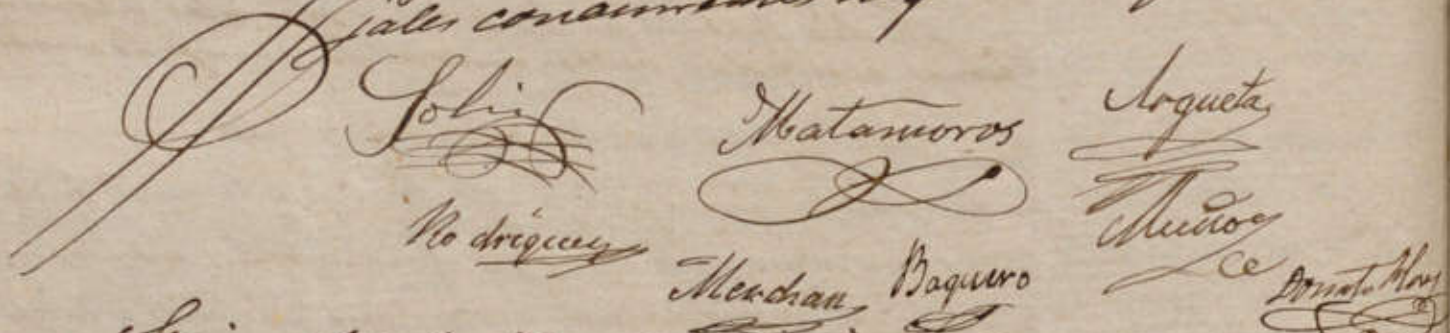 jales
Solis Matamoros Argueta
Rodriguez Muñoz
Merchan Baquero
Donato